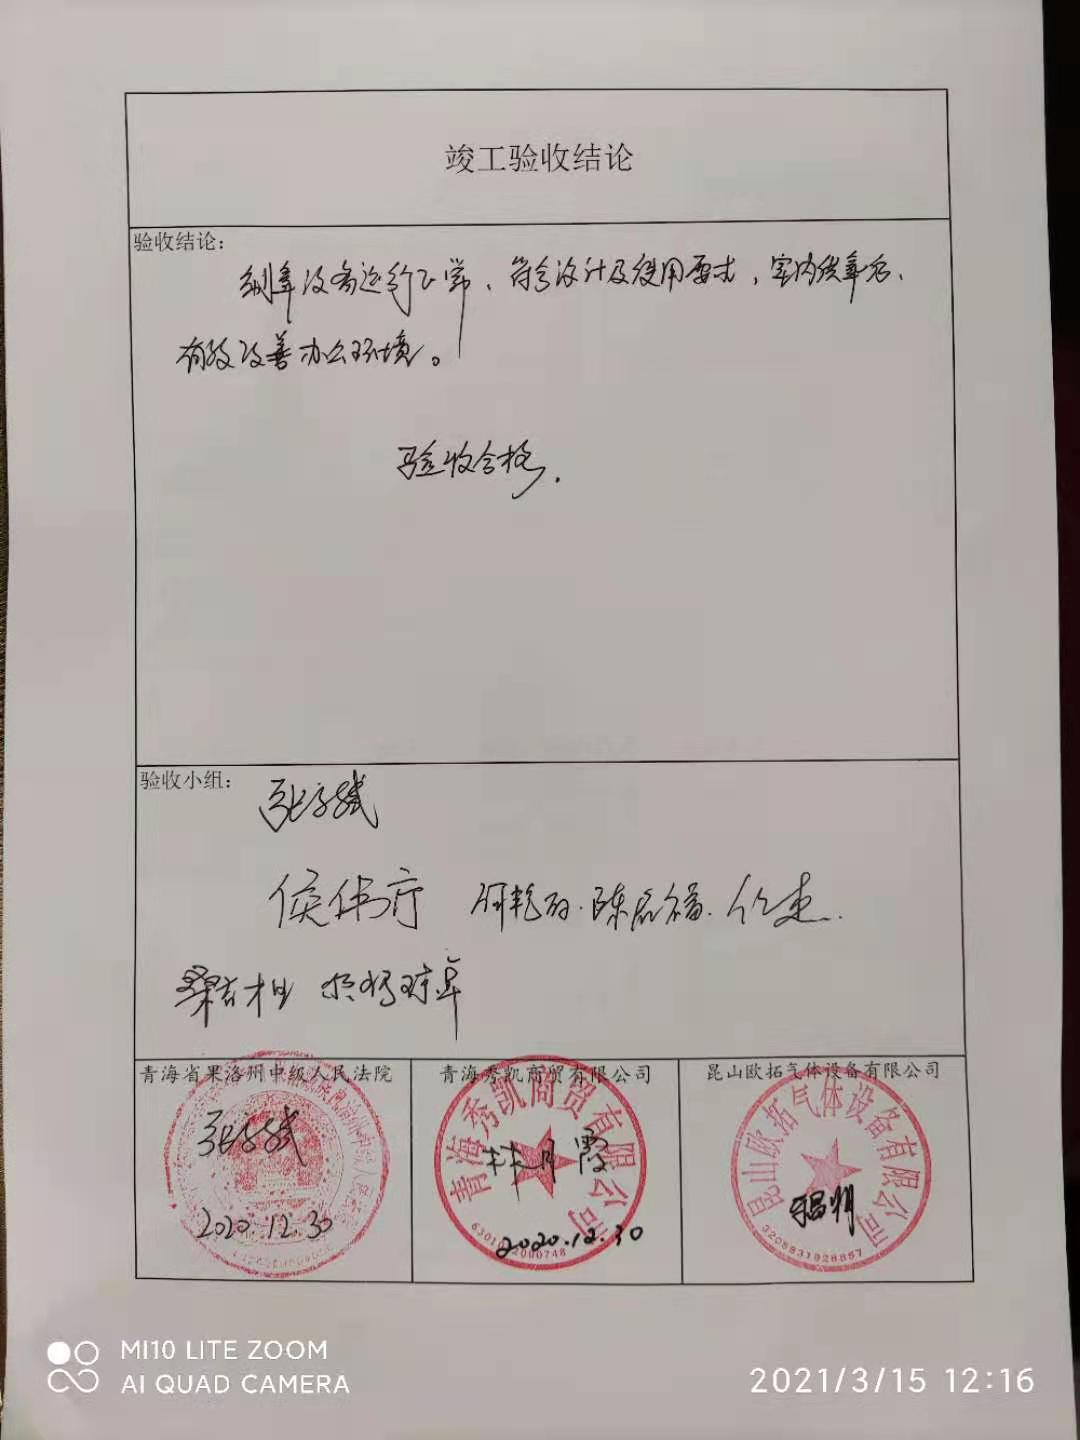 竣工验收结论
验收结论：
制氧设备运行正常、符合设计及使用要求，室内供氧后、
有效改善办公环境。
验收合格.
验收小组：
侯伟
陈
桑吉
青海省果洛州中级人民法院
青海秀凯商贸有限公司
昆山欧拓气体设备有限公司
青海秀凯商贸有限公司
昆山欧拓气体设备有限公司
林月霞
2020.12.30
2020.12.30
3205831928857
MI10 LITE ZOOM
AI QUAD CAMERA
2021/3/15 12:16